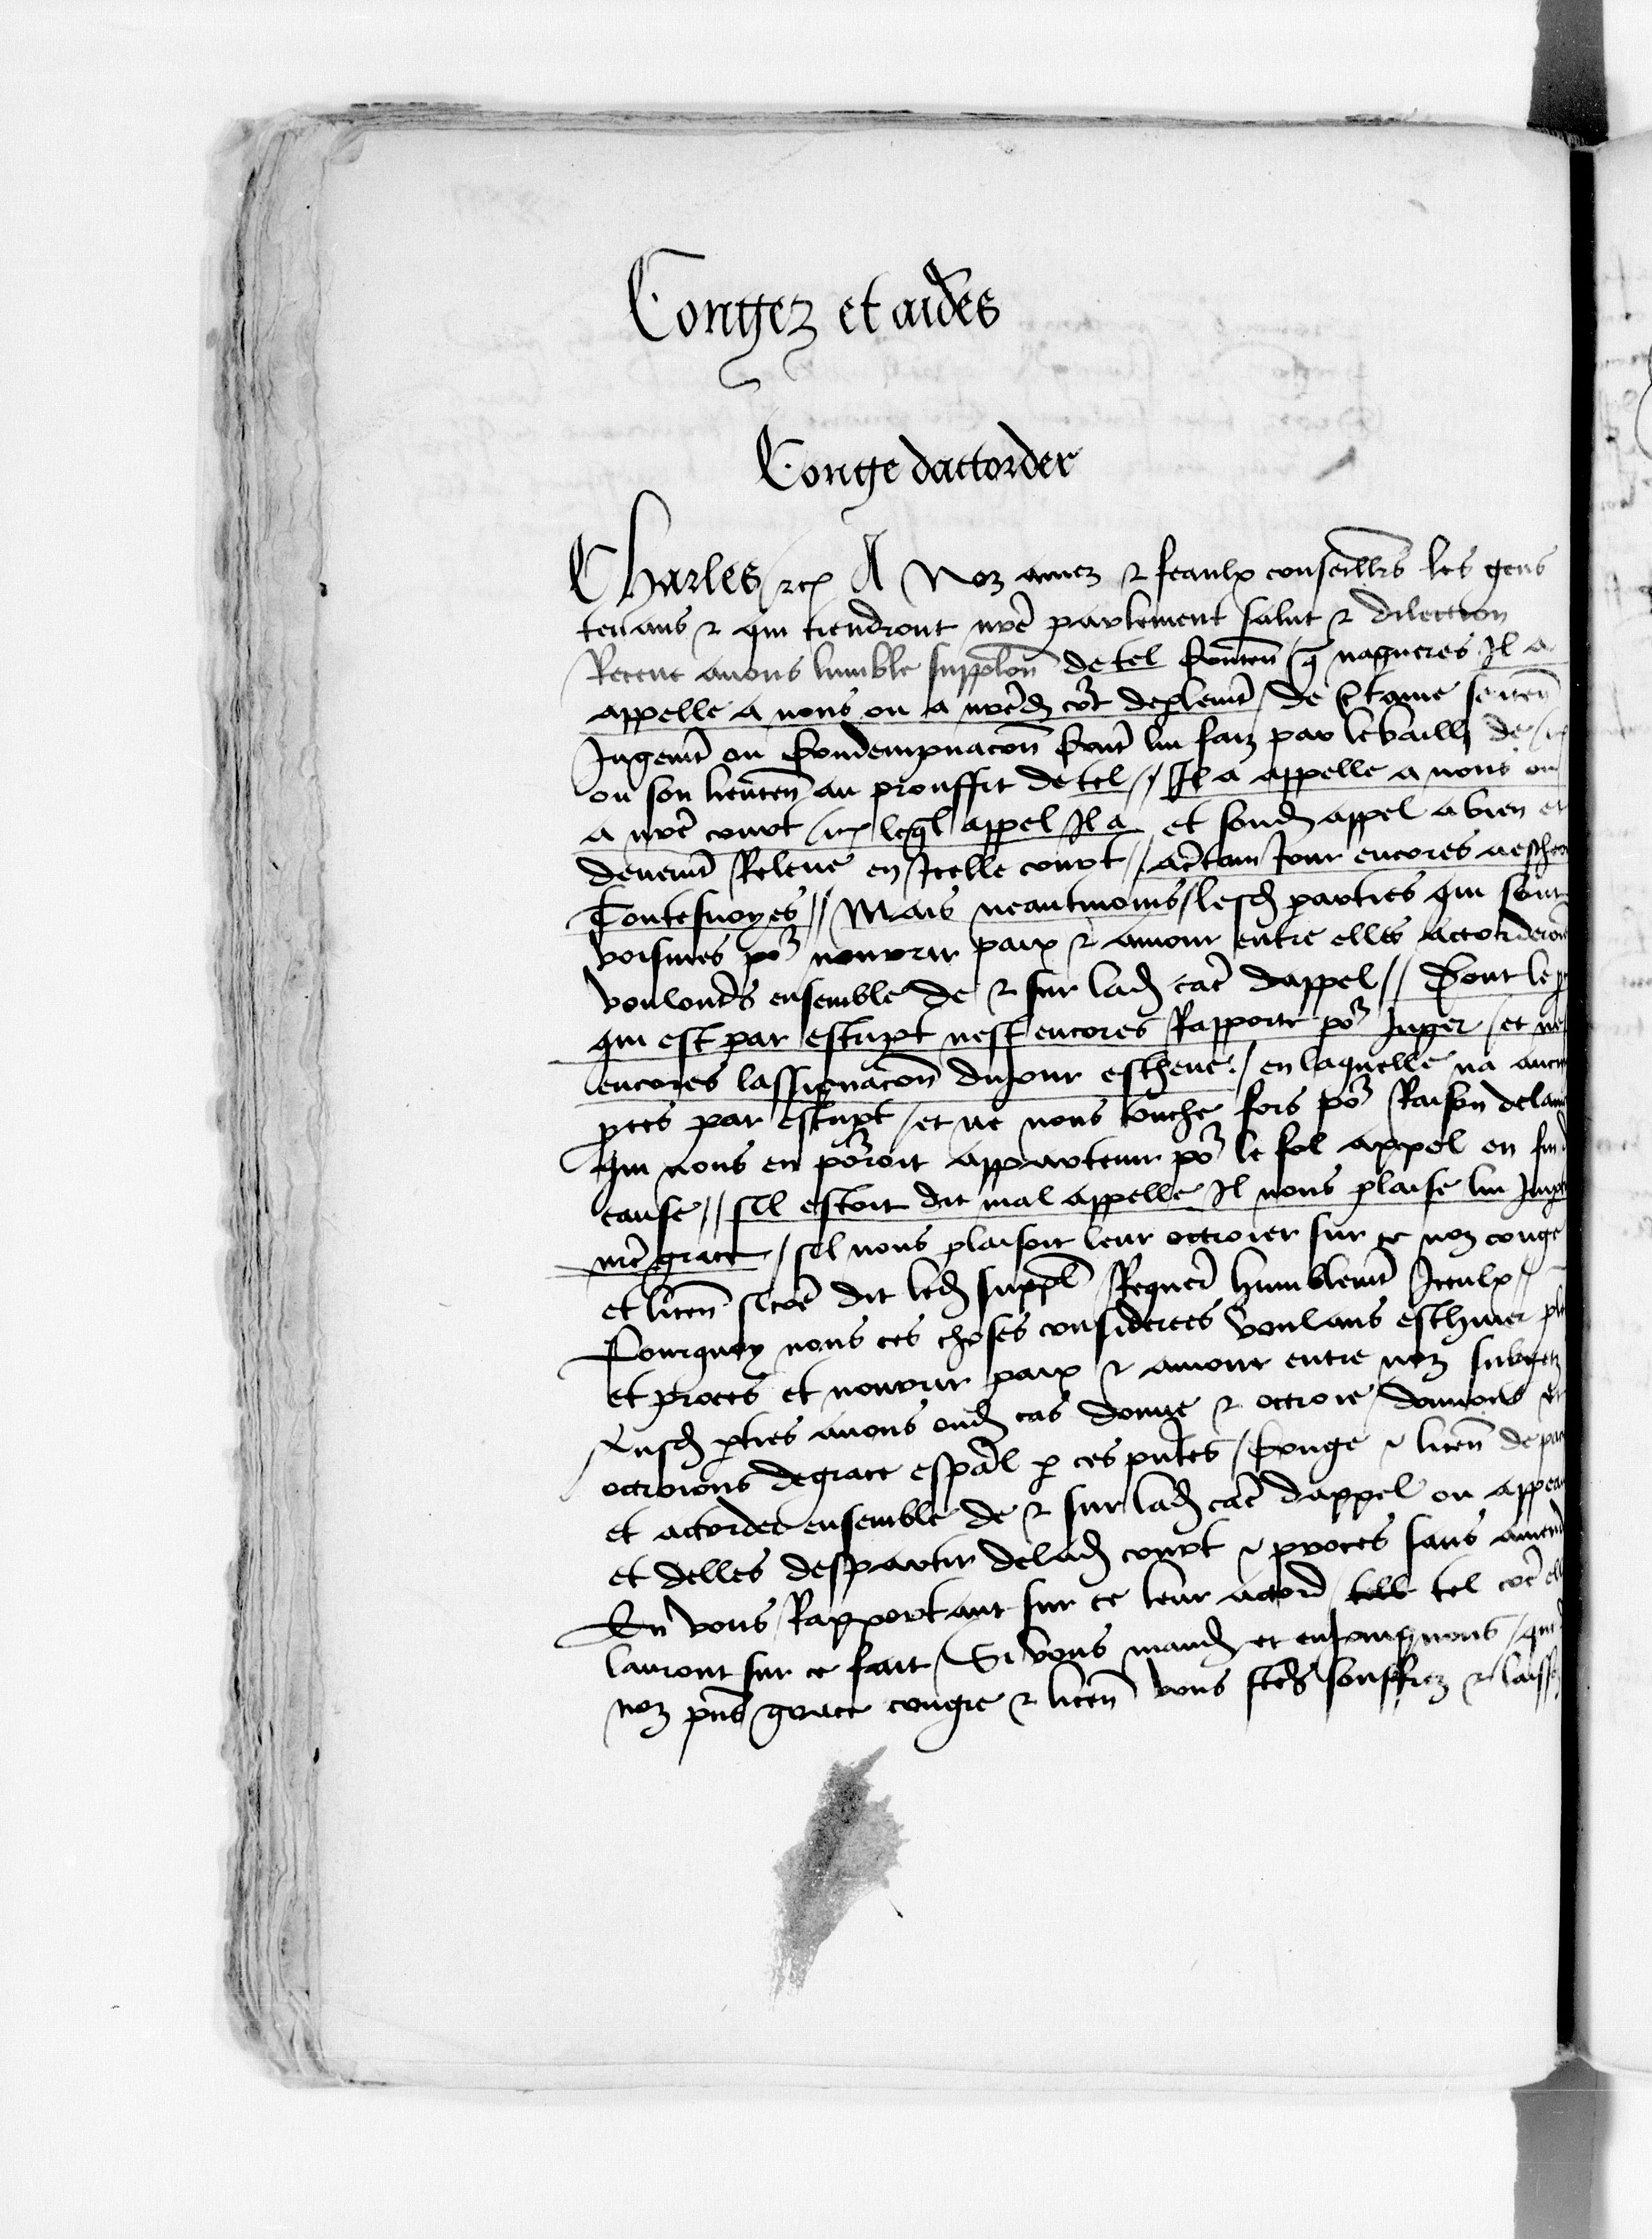 Congez et aides
Conge daccorder
Charles etc A Noz amez et feaulx conseillrs les gens
tenans et qui tiendront nre parlement salut et dilection
Receue avons lumble supplon de tel conten que nagueres Il a
appelle a nous ou a nred court de parlemt de certaine senten
Jugemt ou condempnacon contre lui faiz par le bailli de etc
ou son lieuten au prouffit de tel // Il a appelle a nous ou
a nre court etc lequel appel Il a et sond appel a bien et
deuemt Releve en Icelle court // a certain Jour encores a escheoi
Toutesvoyes // Mais neantmoins lesd parties qui sont
voisines por nourrir paix et amour entre elles accorderoi
voulontrs ensemble de et sur lad cae dappel // Dont le
qui est par escript nest encores Rapporte por Juger et nes
encores lassignacon du jour escheue / en laquelle na aucun
pces par escript / et ne nous touche fors por Raison de lam
qui nous en porroit appartenir por le fol appel en fin d
cause // sil estoit dit mal appelle Il nous plaise lui Impar
nre grace / sil nous plaisoit leur octroier sur ce noz conge
et licen sicoe dit led suppl Requert humblemt Iceulx /
Pourquoy nous ces choses considerees voulans eschiver pl
et proces et nourrir paix et amour entre noz subgetz
Ausd pties avons oud cas donne et octroie donnons et
octroions de grace espal p ces pntes / Conge et licen de pac
et accorder ensemble de et sur lad cae dappel ou appeaulx
et delles despartir de lad court et proces sans amend
En vous Rapportant sur ce leur accord / telle tel coe ell
lauront sur ce fait / Si vous mand et enjoingnons / que d
noz pns grace congie et licen vous souffrez et laissez